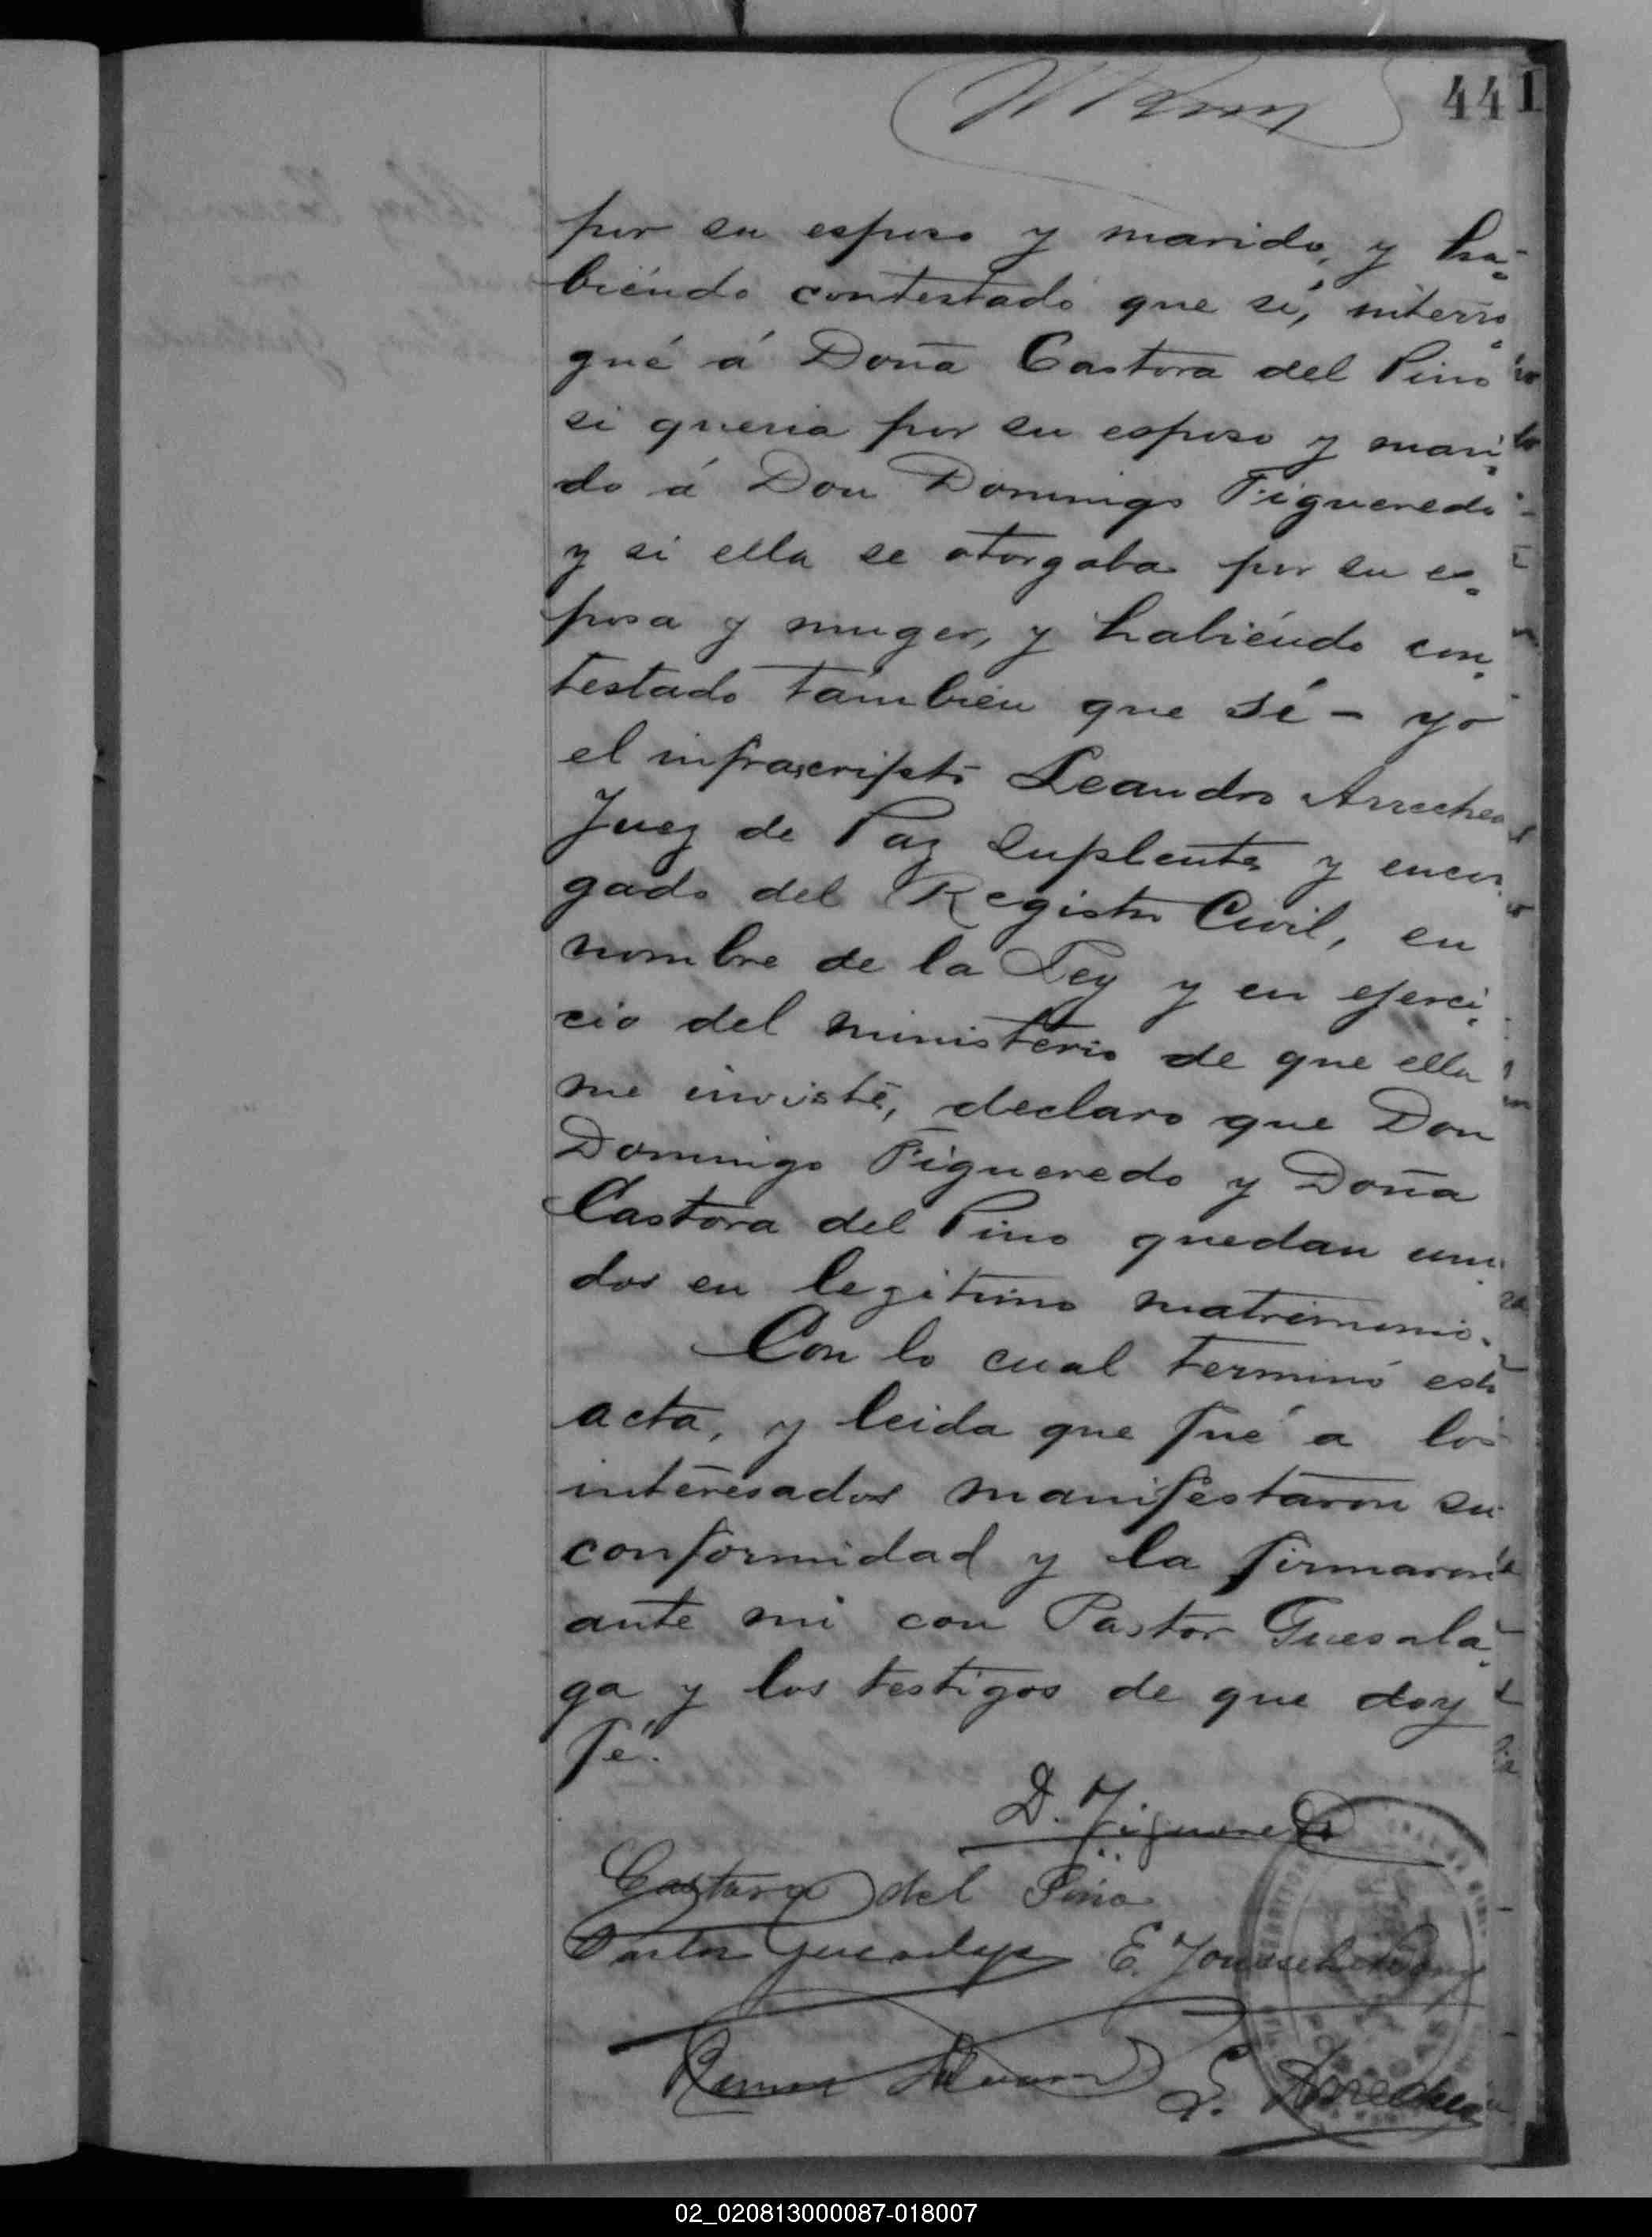 441
por su esposo y marido, y ha-
biéndo contestado que sí, interro
gué á Doña Castora del Pino
si queria por su esposo y mari-
do á Don Domingo Figueredo
y si ella se otorgaba por su es-
posa y muger, y habiéndo con-
testado también que sí - yo
el infrascripto Leandro Arrechea
Juez de Paz Suplente y encar
gado del Registro Civil, en
nombre de la Ley y en ejerci-
cio del ministerio de que ella
me inviste, declaro que Don
Domingo Figueredo y Doña
Castora del Pino quedan uni
dos en legitimo matrimonio.
Con lo cual terminó esta
acta, y leida que fué a los
interesados manifestaron su
conformidad y la firmaron
ante mi con Pastor Guesala-
ga y los testigos de que doy
fé.
D. Figueredo
Castora del Pino
Pastor Guesalaga E.
Ramon
L. Arrechea
02_020813000087-018007